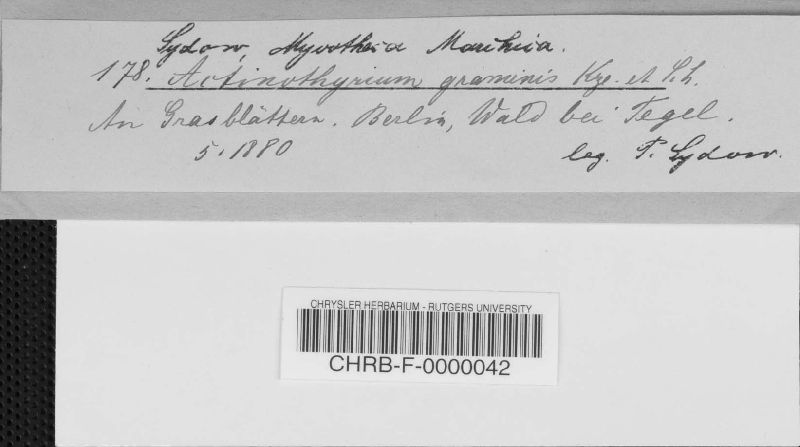 Sydow, Mycotheca Marchica.
178. Actinothyrium graminis Kze. et Sch.
An Grasblättern. Berlin, Wald bei Tegel.
5. 1880
leg. P. Sydow.
CHRYSLER HERBARIUM - RUTGERS UNIVERSITY
CHRB-F-0000042